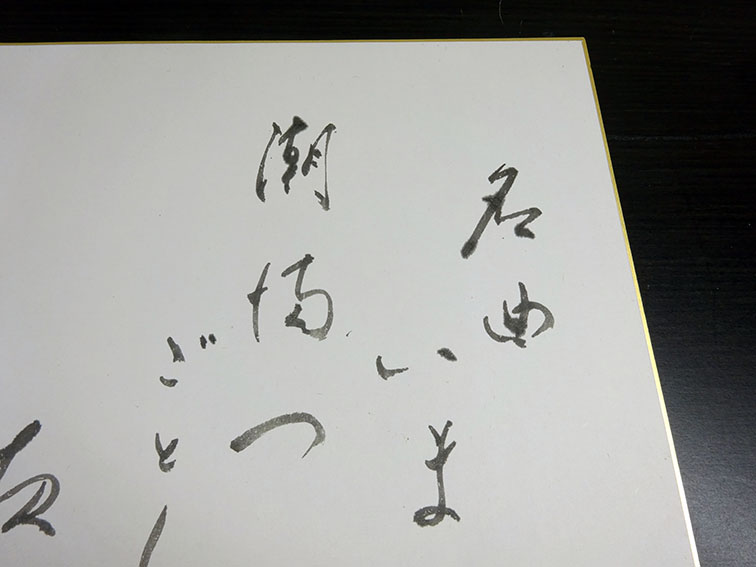 名曲
いま
潮満つ
ごとし